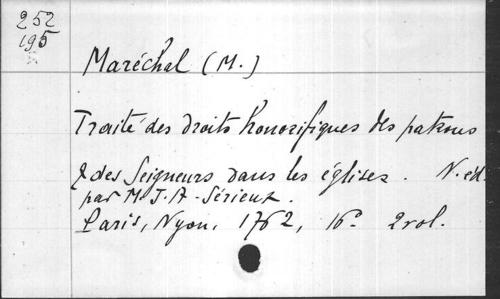 252
195
Maréchal (M.)
Traité des droits honorifiques des patrons
& des Seigneurs dans les églises. N. éd.
par M. J. A. Sérieux.
Paris, Nyon, 1762, 16º 2 vol.